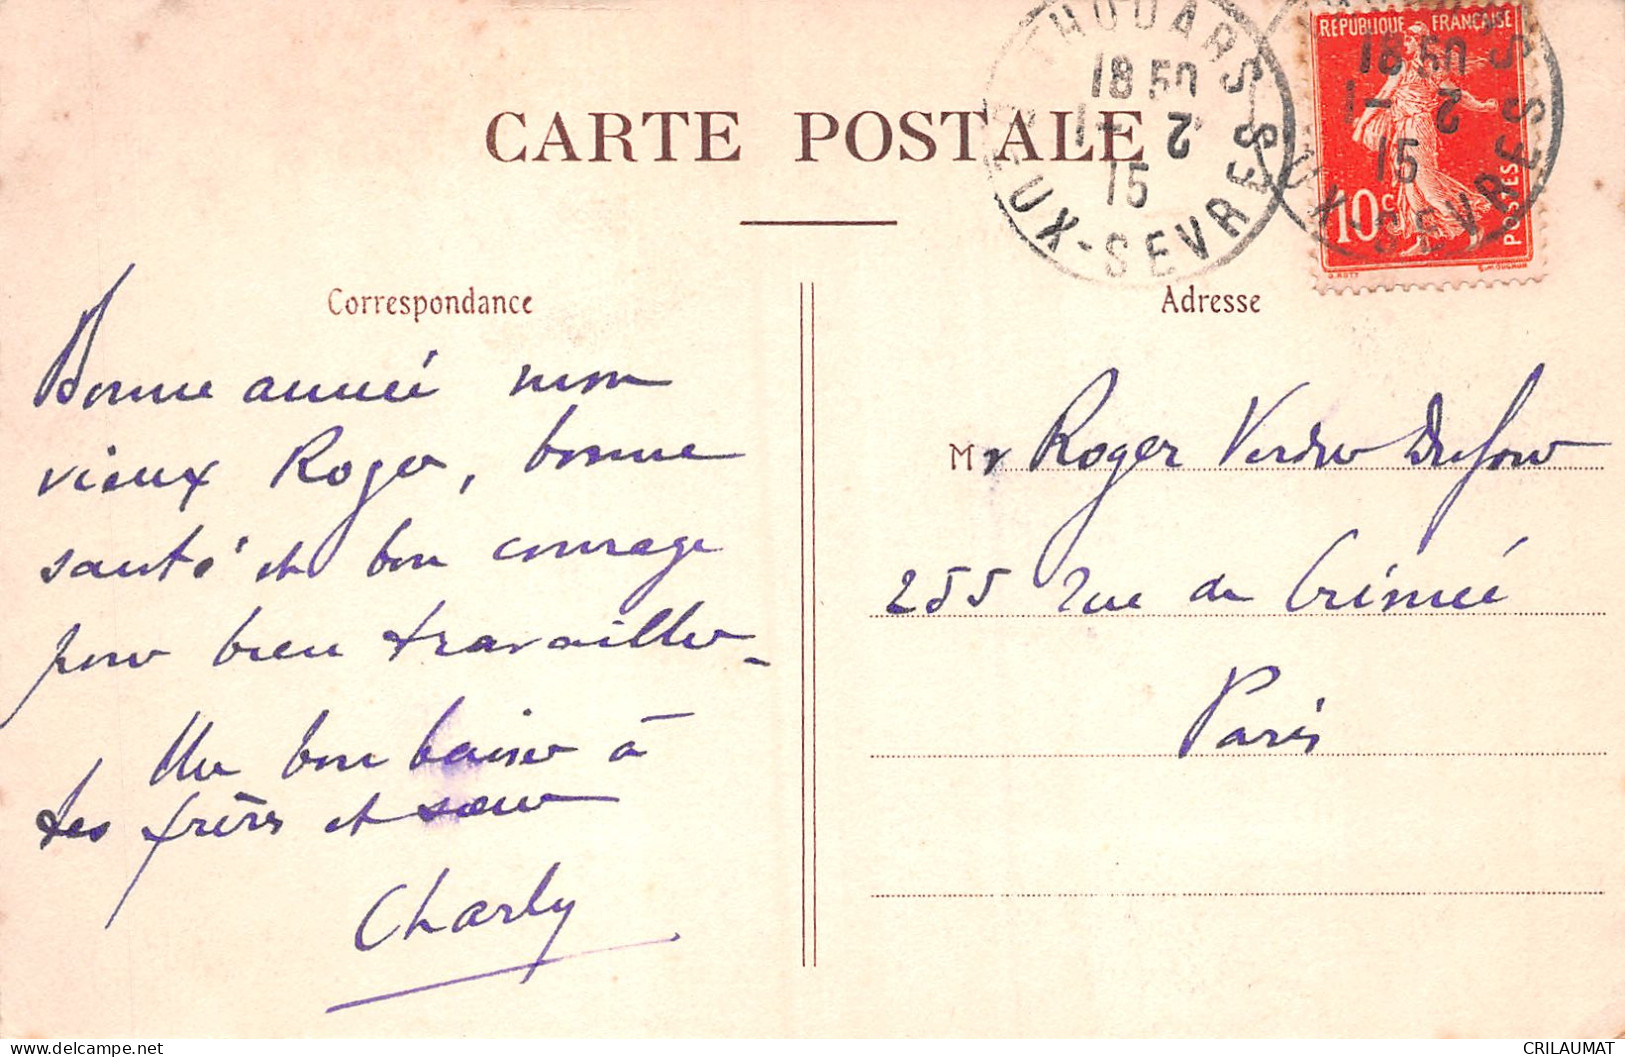 CARTE POSTALE
THOUARS
18 50
1 - 2
15
DEUX-SEVRES
REPUBLIQUE FRANÇAISE
10c
POSTES
Correspondance
Adresse
Bonne année mon
vieux Roger, bonne
santé et bon courage
pour bien travailler_
Un bon baiser à
tes frères et sœur
Charly
Mr Roger
255 rue de Crimée
Paris
CRILAUMAT